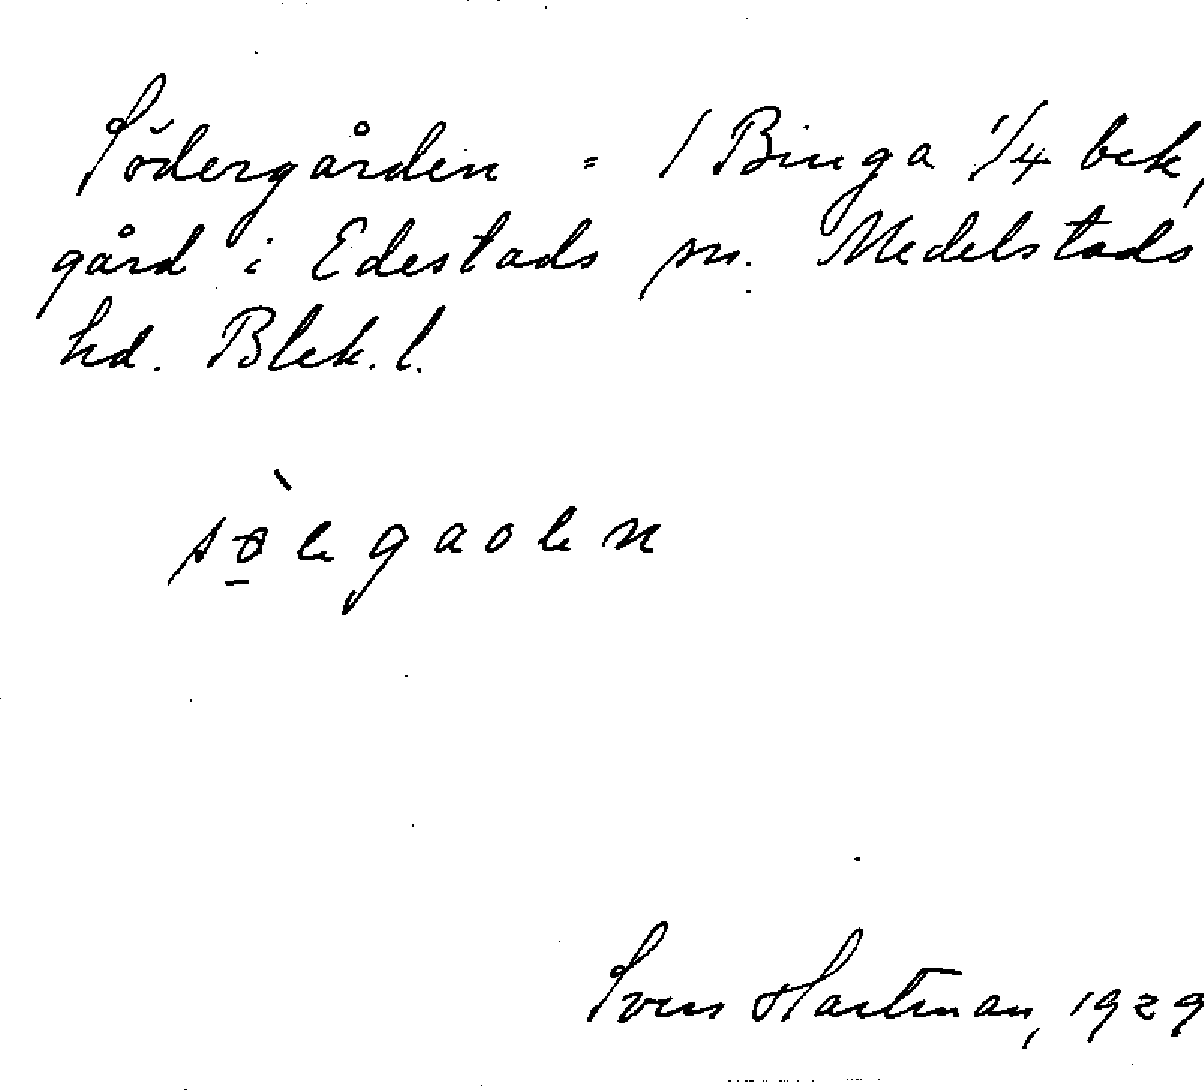 Södergården = 1 Binga 1/4 bek,
gård i Edestads sn. Medelstads
hd. Blek. l.
Sven Hartman, 1929